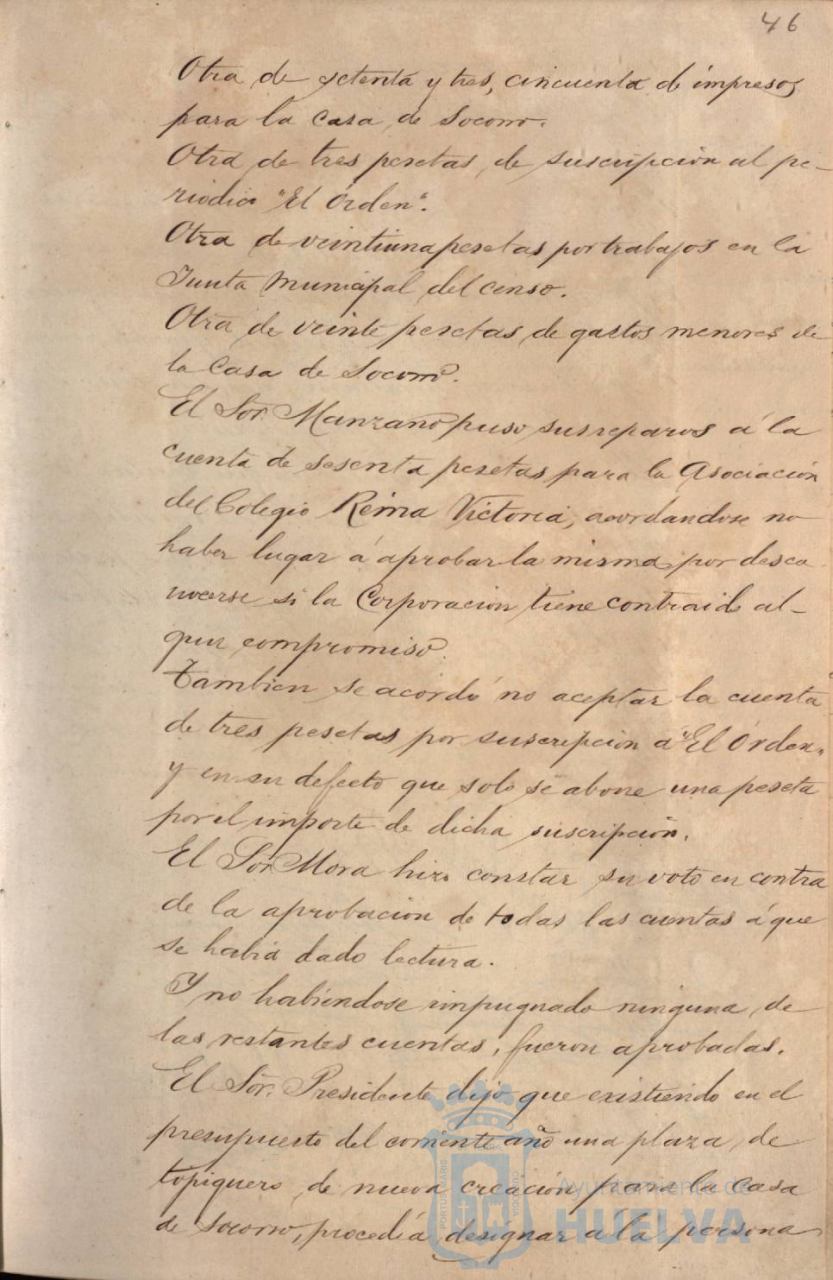 46
Otra de setenta y tres, cincuenta de impresos
para la Casa de Socorro.
Otra de tres pesetas, de suscripción al pe-
riodico "El Órden".
Otra de veintiuna pesetas por trabajos en la
Junta Municipal del censo.
Otra de veinte pesetas de gastos menores de
la Casa de Socorro.
El Sor. Manzano puso sus reparos á la
cuenta de sesenta pesetas para la Asociación
del Colegio Reina Victoria, acordandose no
haber lugar á aprobar la misma por desco
nocerse si la Corporacion tiene contraido al-
gun compromiso.
Tambien se acordó no aceptar la cuenta
de tres pesetas por suscripción a "El Órden"
y en su defecto que solo se abone una peseta
por el importe de dicha suscripción.
El Sor. Mora hizo constar su voto en contra
de la aprobacion de todas las cuentas á que
se habia dado lectura.
Y no habiéndose impugnado ninguna de
las restantes cuentas, fueron aprobadas.
El Sor. Presidente dijo que existiendo en el
presupuesto del corriente año una plaza de
topiquero, de nueva creación para la Casa
de Socorro, procedia designar a la persona
Ayuntamiento de
HUELVA